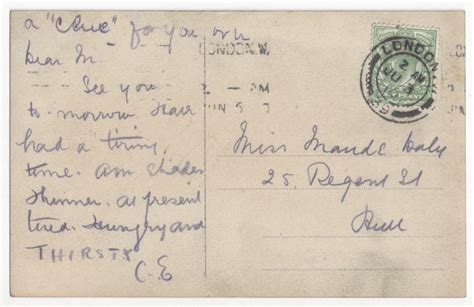 a "CRUE" for you
LONDON.W.
Dear M.
See you
to morrow. Have
had a tiring
time. am shades
thinner. at present
tired. Hungry and
THIRSTY
C.E
LONDON
2 AM
JU
Miss Maude Daly
25. Regent St
Hull